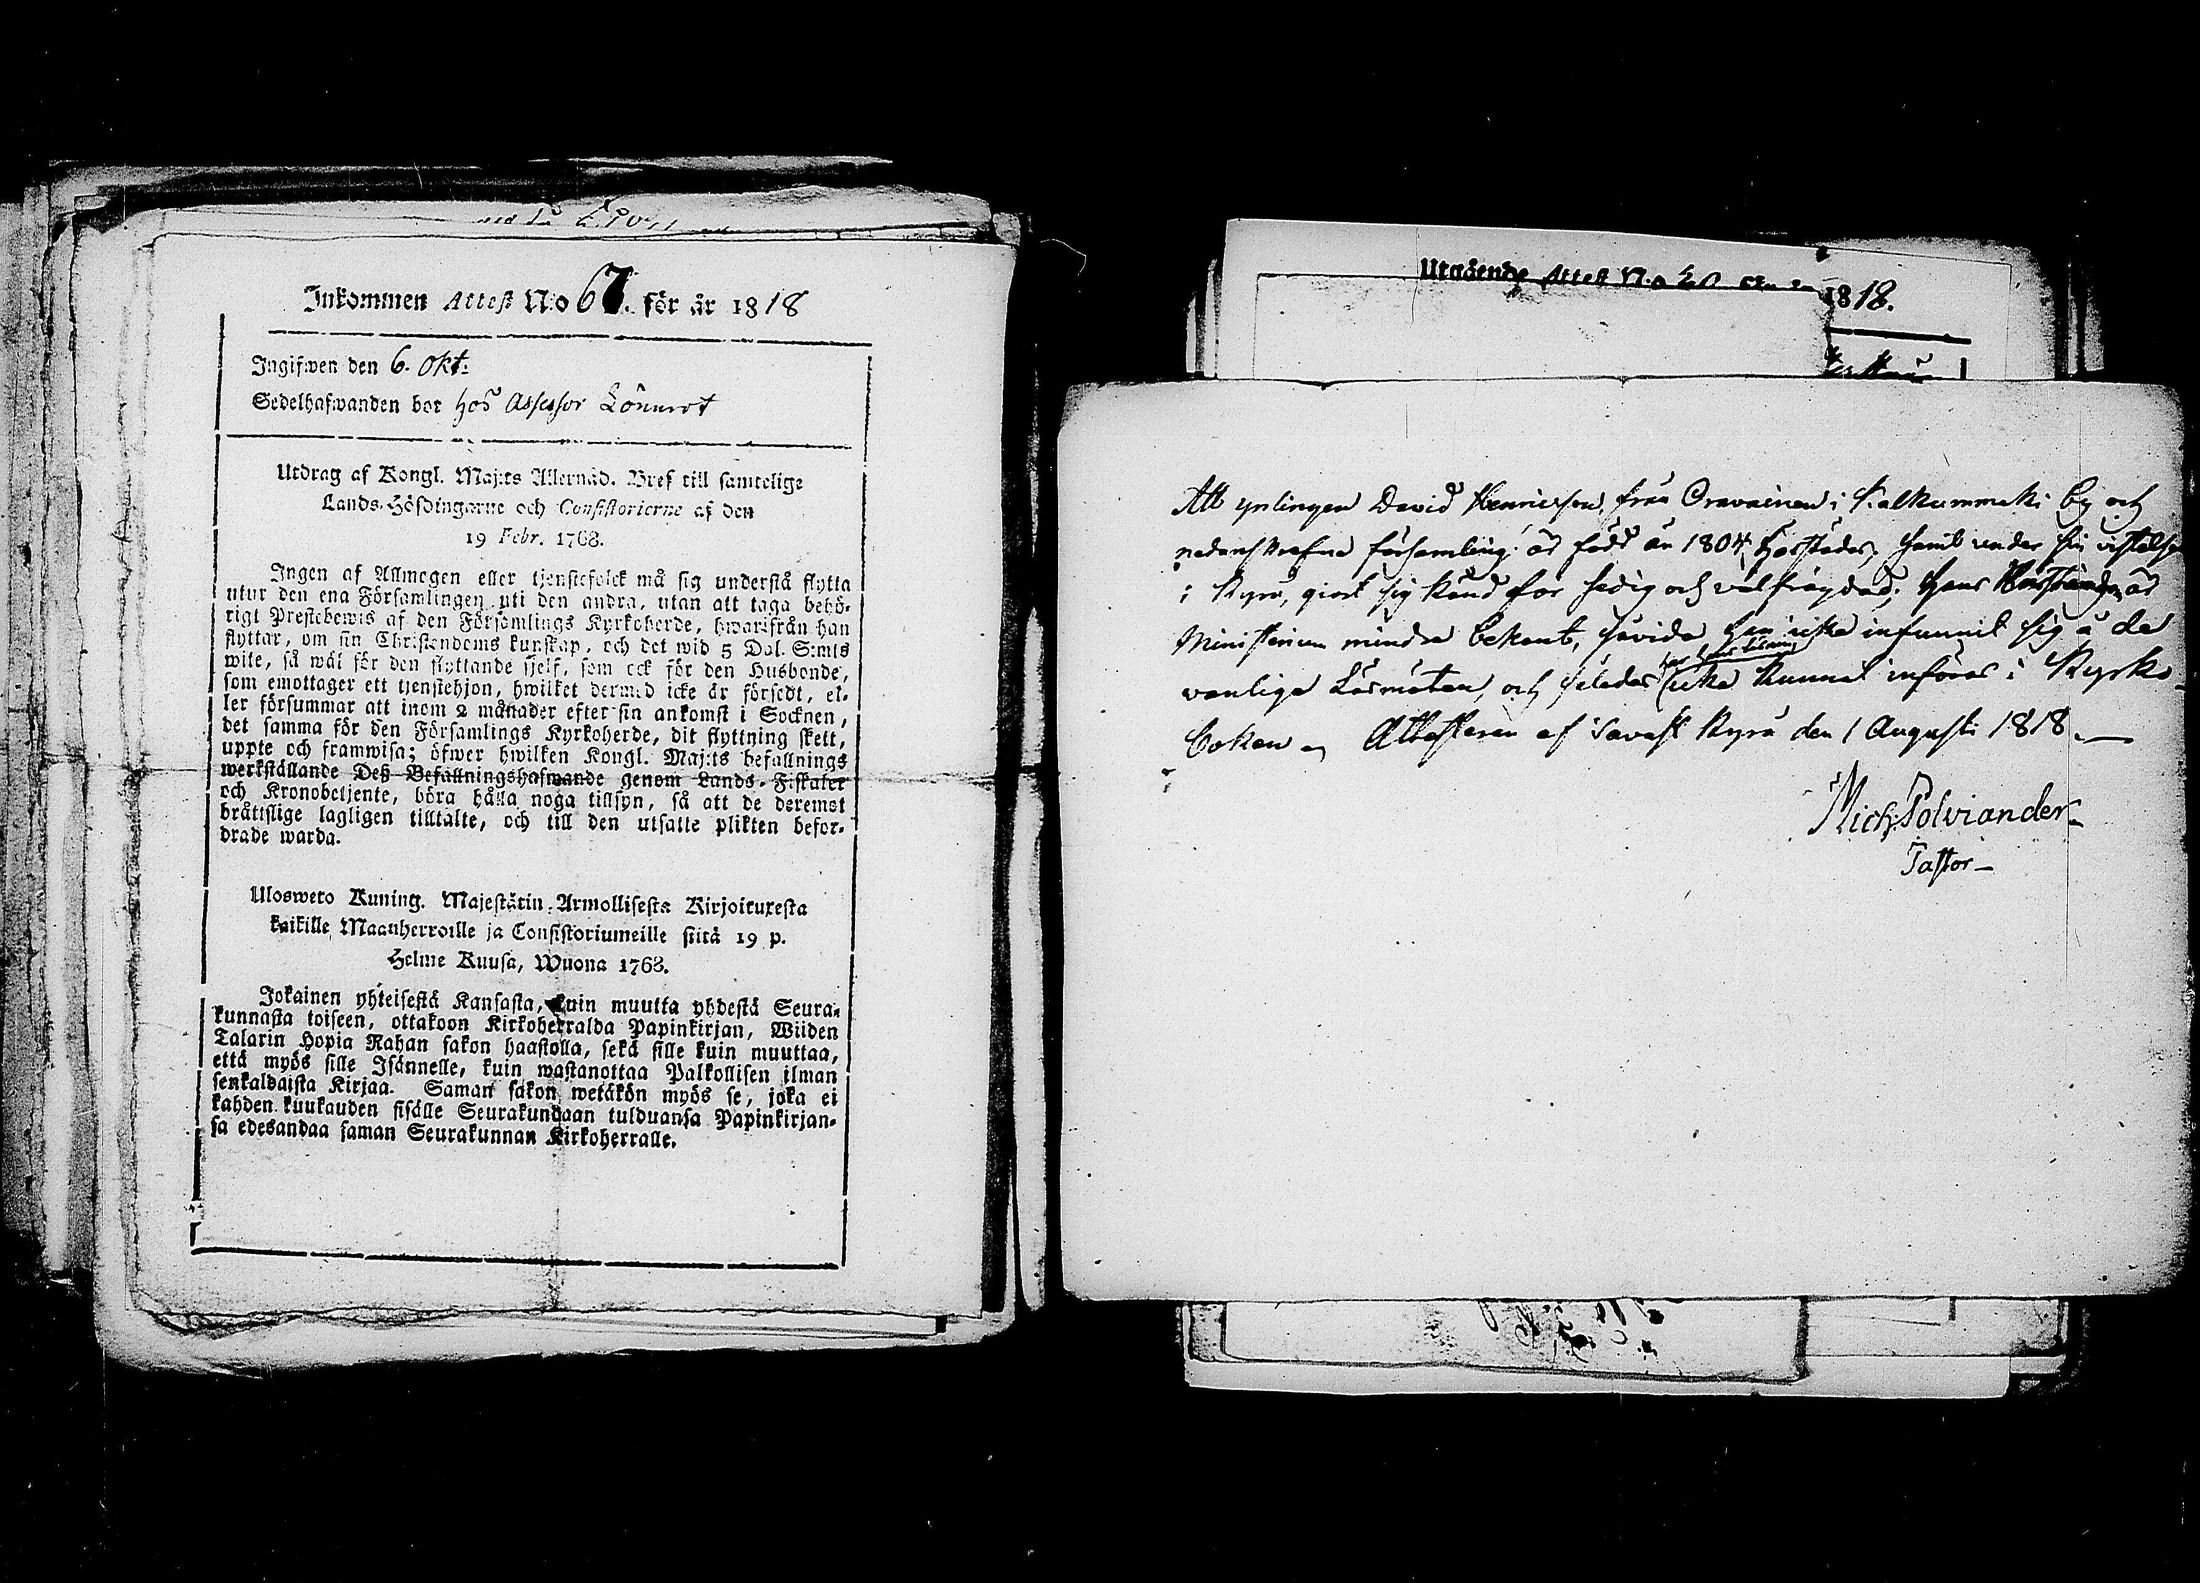 Inkommen Attest No 67. för år 1818
Ingifwen den 6. Okt:
Sedelhafwanden bor hos Assessor Lönnrot
Utdrag af Kongl. Maj:ts Allernåd. Bref till samtelige
Lands-Höfdingarne och Consistorierne af den
19 Febr. 1768.
Ingen af Allmogen eller tjenstefolck må sig understå flytta
utur den ena Församlingen uti den andra, utan att taga behö-
rigt Prestebewis af den Församlings Kyrkoherde, hwarifrån han
flyttar, om sin Christendoms kunskap, och det wid 5 Dal. S:mts
wite, så wäl för den flyttande sjelf, som ock för den Husbonde,
som emottager ett tjenstehjon, hwilket dermed icke är försedt, el-
ler försummar att inom 2 månader efter sin ankomst i Socknen,
det samma för den Församlings Kyrkoherde, dit flyttning skett,
uppte och framwisa; öfwer hwilken Kongl. Maj:ts befallnings
werkställande Deß Befallningshafwande genom Lands-Fiskaler
och Kronobetjente, böra hålla noga tillsyn, så att de deremot
bråttslige lagligen tilltalte, och till den utsatte plikten befor-
drade warda.
Ulosweto Kuning. Majestätin Armollisesta Kirjoituxesta
kaikille Maanherroille ja Consistoriumeille siitä 19 p.
Helme Kuusa, Wuona 1768.
Jokainen yhteisestä Kansasta, kuin muutta yhdestä Seura-
kunnasta toiseen, ottakoon Kirkoherralda Papinkirjan, Wiiden
Talarin Hopia Rahan sakon haastolla, sekä sille kuin muuttaa,
että myös sille Isännelle, kuin wastanottaa Palkollisen ilman
senkaldaista Kirjaa. Saman sakon wetäkön myös se, joka ei
kahden kuukauden sisälle Seurakundaan tulduansa Papinkirjan-
sa edesandaa saman Seurakunnan Kirkoherralle.
Utgående Attest No 20
1818.
Att ynlingen David Henricsson från Oravainen i Kalkummaki by och
nedanskrefne församling är född år 1804 härstädes, samt under sin vistelse
i Kyro, giort sig känd för sedig och välfräjdad; hans är
Ministerium mindre bekant, såvida han icke infunnit sig å de
vanlige Läsmöten, och således icke kunnat införas i Kyrko-
boken Attesteras af Tavast Kyro den 1 Augusti 1818.
Mich: Polviander
Pastor